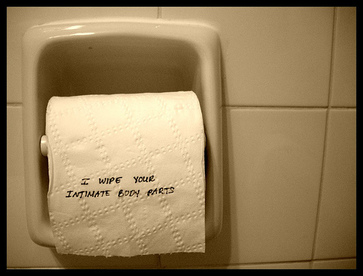 I WIPE YOUR
INTIMATE BODY PARTS